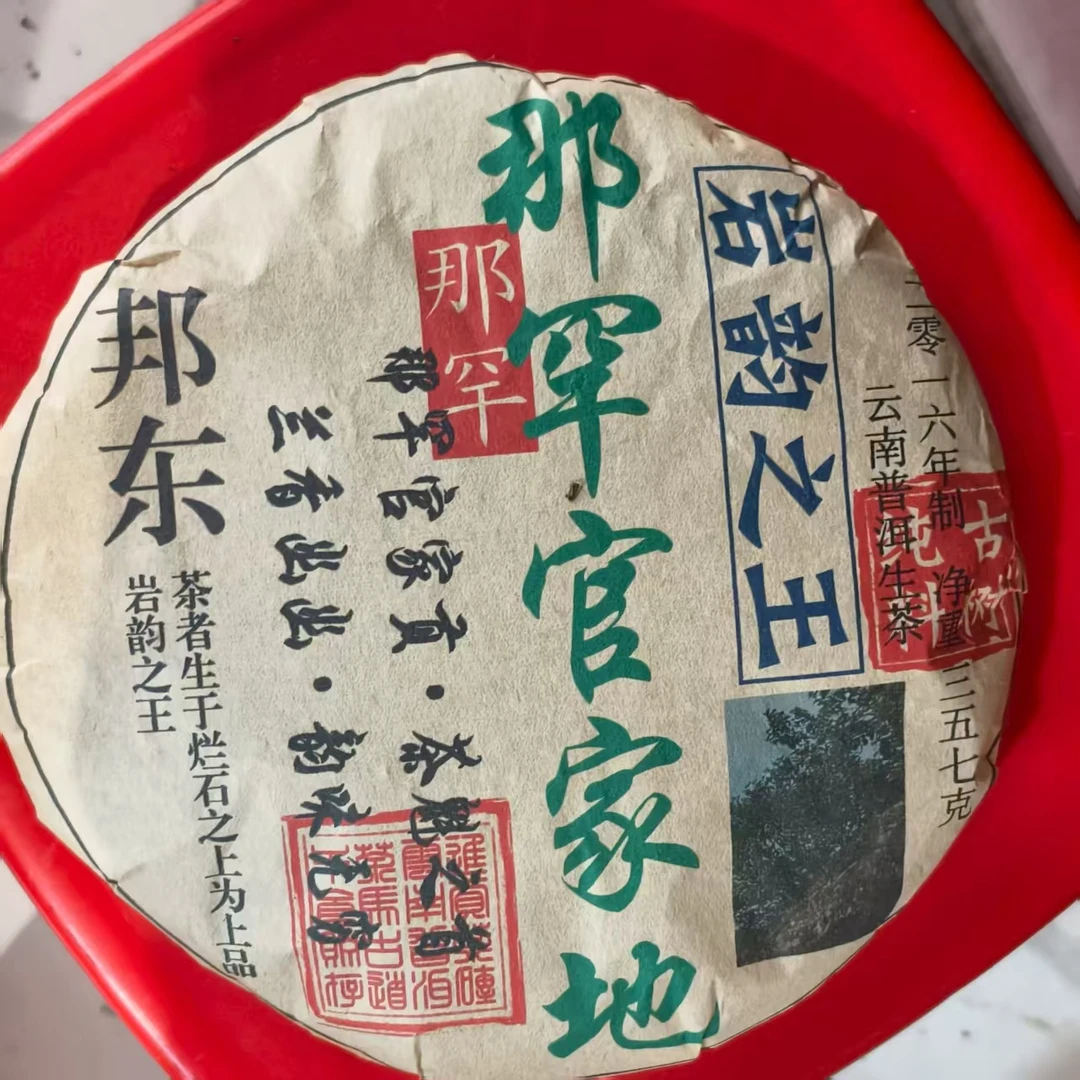 二零一六年制 净重三五七克
云南普洱生茶
古树
纯料
岩韵之王
那罕官家地
那罕
那罕官家贡·茶魁又首
兰香出出·韵味
邦东
茶者生于烂石之上为上品
岩韵之王